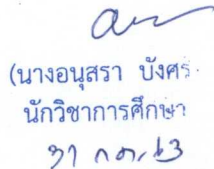 (นางอนุสรา บังศร
นักวิชาการศึกษา
31 ก.ค. 63